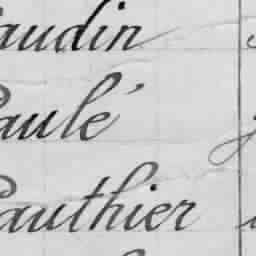 audin
aulé
authier